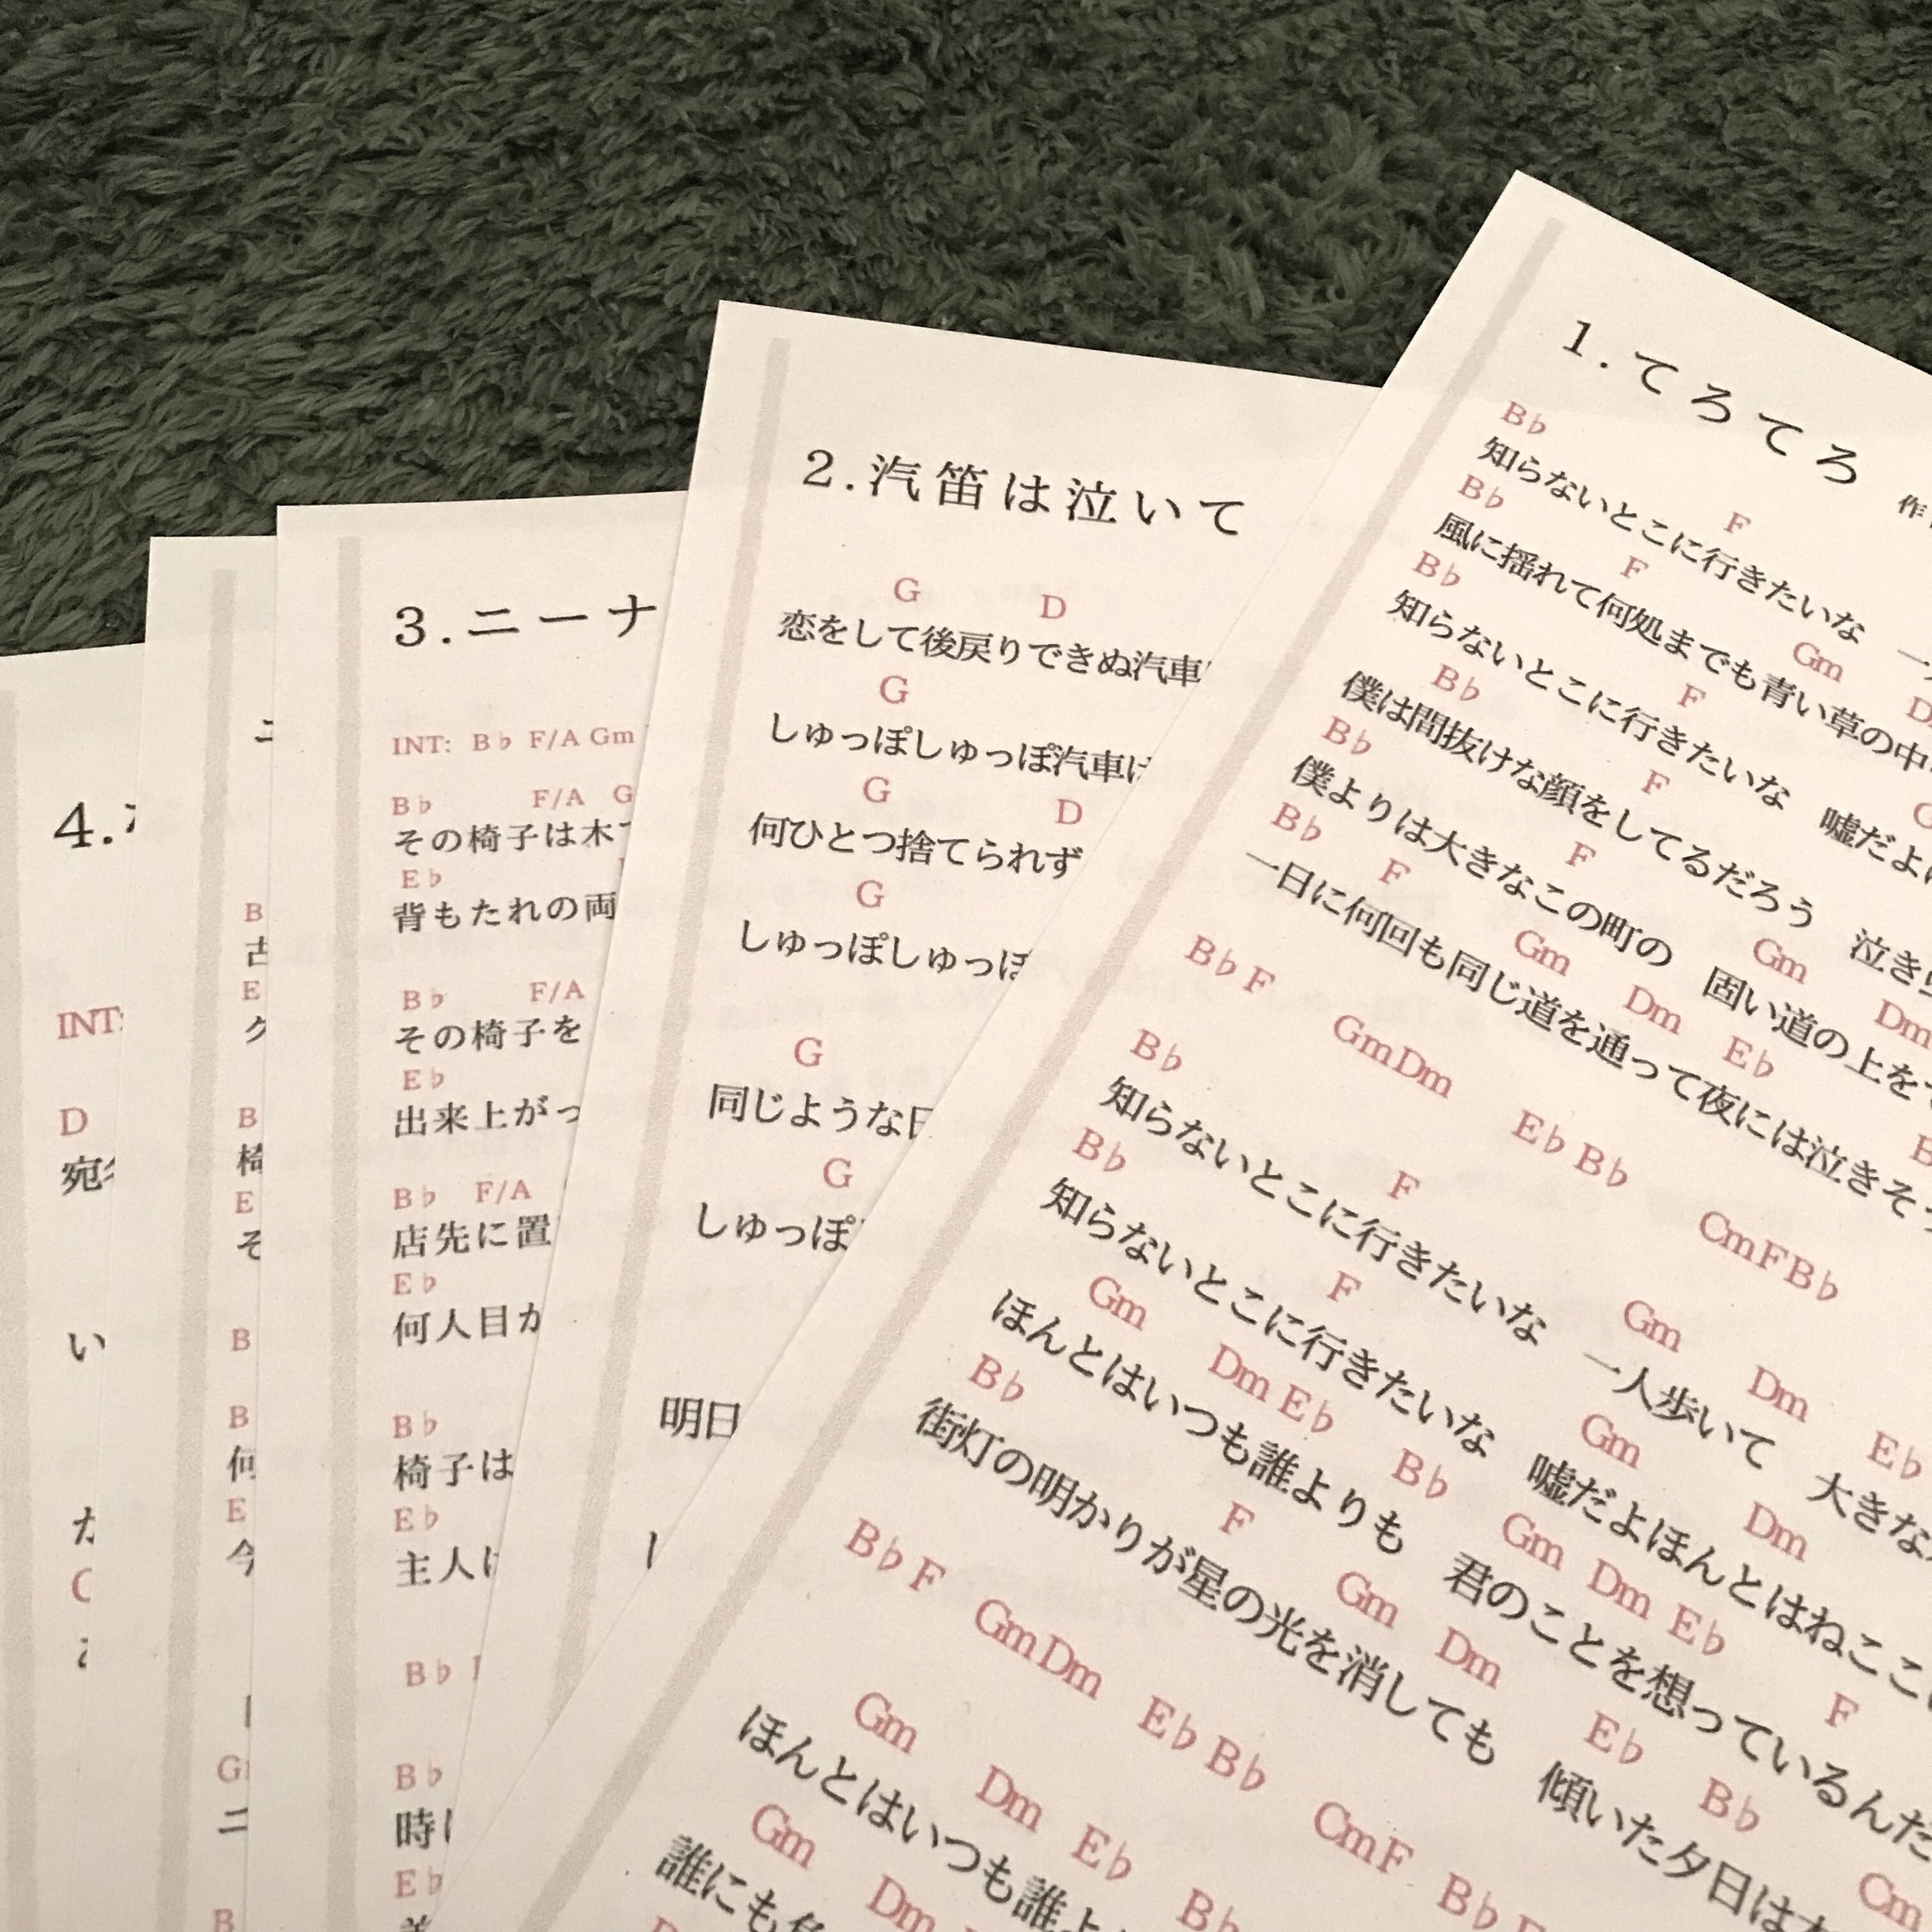 1.てろてろ
作
B♭ F
知らないとこに行きたいな
B♭ F Gm
風に揺れて何処までも青い草の中
B♭ F
知らないとこに行きたいな 嘘だよ
B♭ F
僕は間抜けな顔をしてるだろう 泣き
B♭ F Gm Dm
僕よりは大きなこの町の 固い道の上を
B♭ F Gm Dm E♭
一日に何回も同じ道を通って夜には泣きそ
B♭ F GmDm E♭ B♭ CmF B♭
B♭ F Gm Dm E♭
知らないとこに行きたいな 一人歩いて 大きな
B♭ F Gm Dm
知らないとこに行きたいな 嘘だよほんとはねここ
Gm Dm E♭ B♭ Gm Dm E♭ F
ほんとはいつも誰よりも 君のことを想っているんだ
B♭ F Gm Dm E♭ B♭ Cm
街灯の明かりが星の光を消しても 傾いた夕日は
B♭ F GmDm E♭ B♭ CmF B♭
Gm Dm E♭ B♭
ほんとはいつも誰よ
Gm Dm
誰にも
2.汽笛は泣いて
G D
恋をして後戻りできぬ汽車
G
しゅっぽしゅっぽ汽車は
G D
何ひとつ捨てられず
G
しゅっぽしゅっぽ
G
同じような日
G
しゅっぽ
明日
し
3.ニーナ
INT: B♭ F/A Gm
B♭ F/A G
その椅子は木で
E♭
背もたれの両
B♭ F/A
その椅子を
E♭
出来上がっ
B♭ F/A
店先に置
E♭
何人目か
B♭
椅子は
E♭
主人は
B♭
B♭
時
E♭
ニ
B
古
E
ク
B
椅
E
そ
B
B
何
E
今
G
ニ
B
4.
INT:
D
宛
い
か